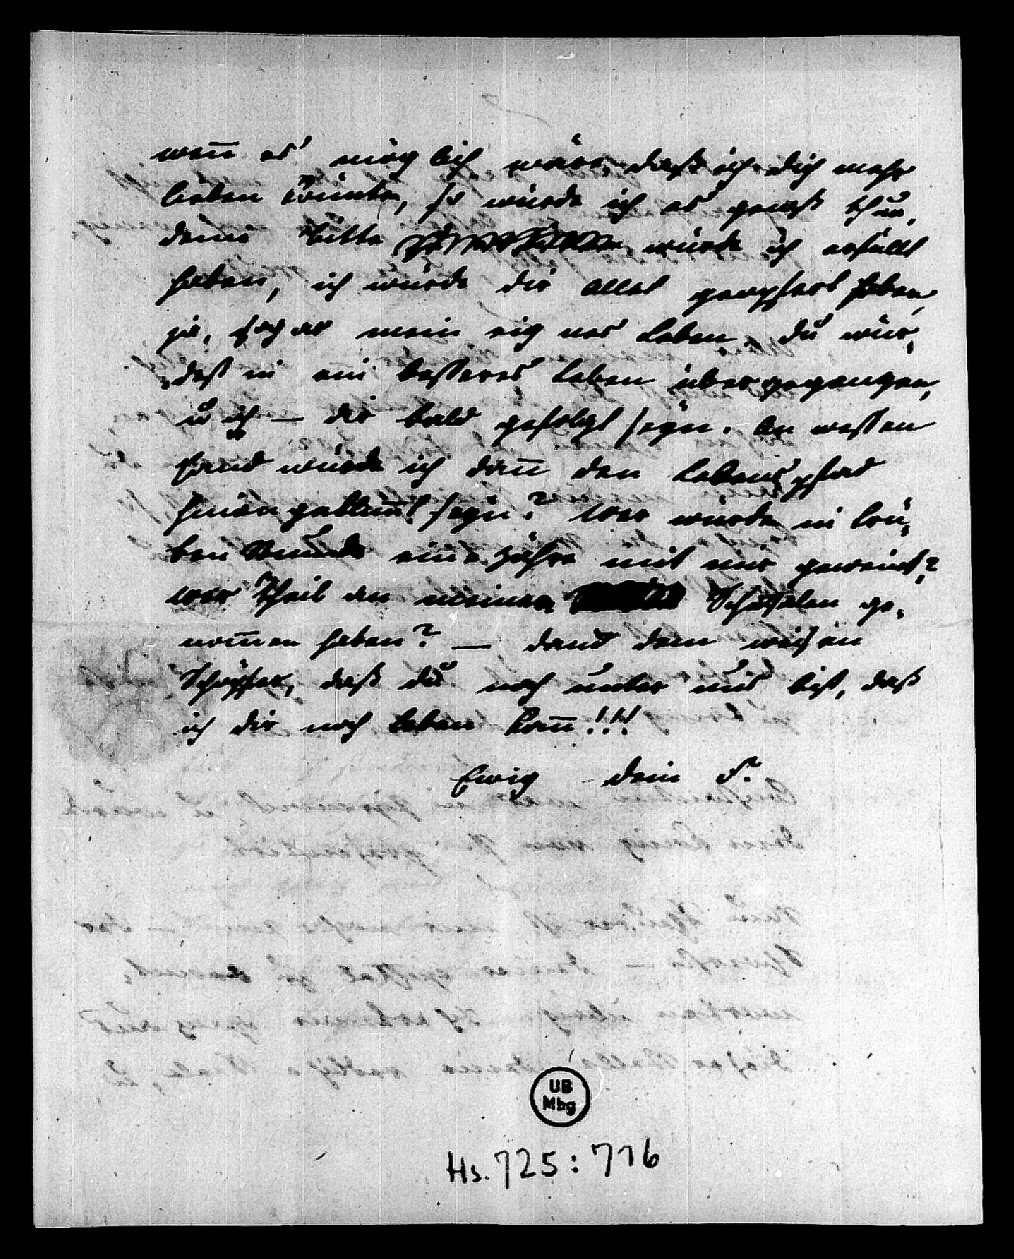 wen̄ es möglich wäre daß ich dich mehr
lieben könnte, so würde ich es gewiß thun,
deine bitte würde ich erfüllt
haben, ich würde dir alles geopfert haben,
ja, sogar mein eignes Leben, du wür-
dest in ein besseres Leben übergegangen,
u ich — dir bald gefolgt seyn. An wessen
Hand würde ich dan̄ den Lebenspfad
hinangeklim̄t seyn? Wer würde in trü-
ben Stunde eine Zähre mit mir geweint?
wer Theil an meinen Schicksalen ge-
nom̄en haben? — dank dem weisen
Schöpfer, daß du noch unter uns bist, daß
ich dir noch leben kan̄!!!
Ewig dein F.
UB
Mbg
Hs. 725:776